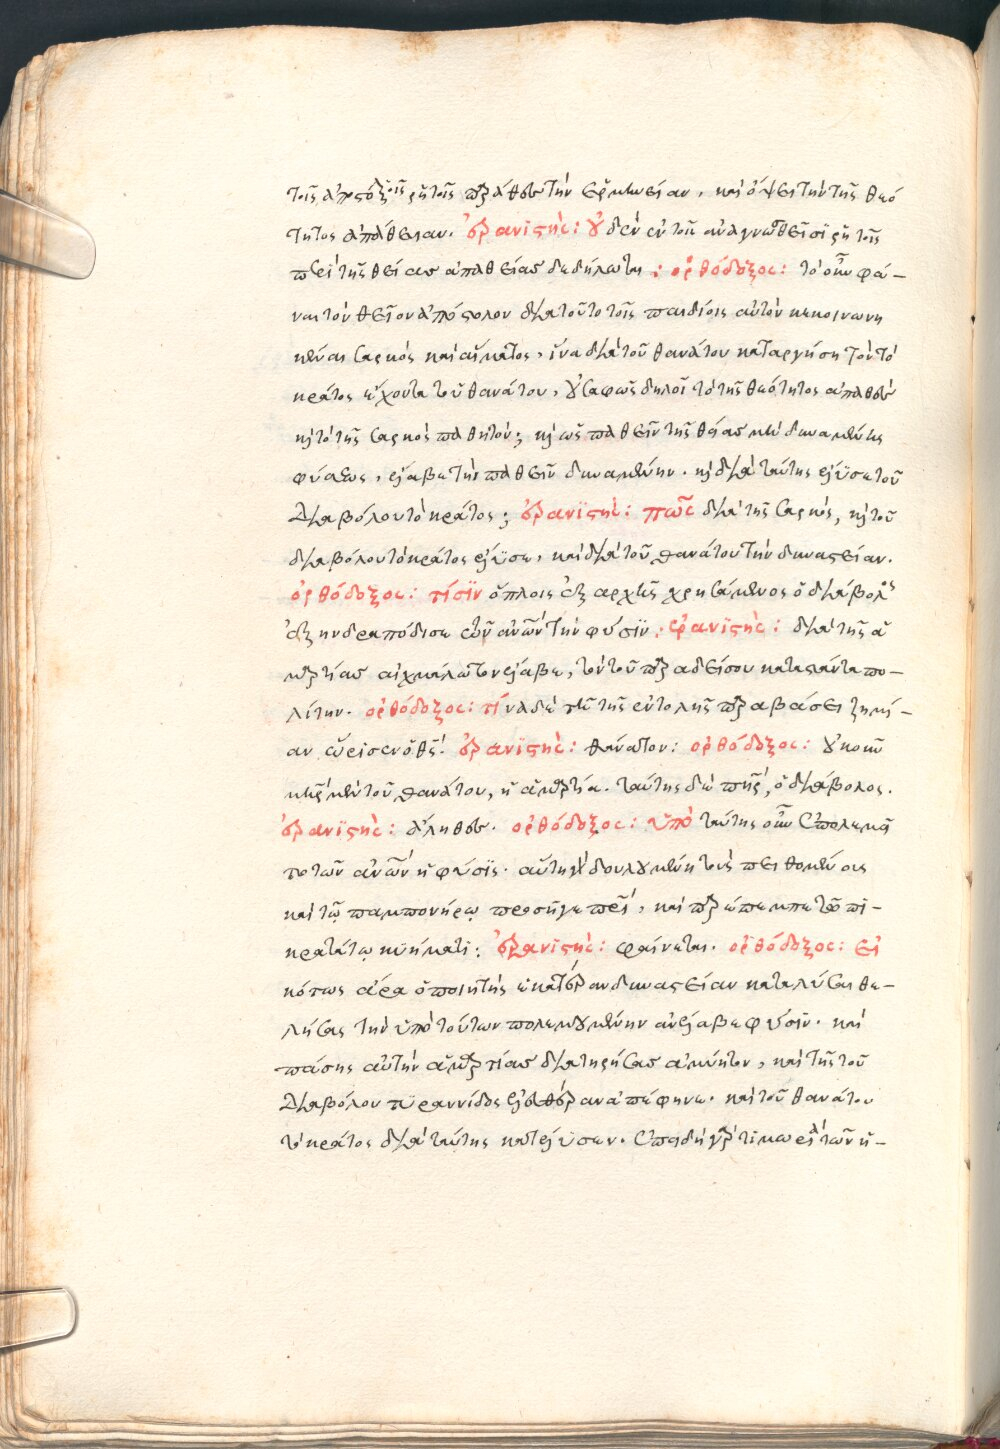 τοῖς ἀποστολικοῖς ῥητοῖς παράθες τὴν ἑρμηνείαν, καὶ ὄψει τὴν τῆς θεό
τητος ἀπάθειαν. ἐρανϊστής: οὐδὲν ἐν τοῖς ἀναγνωσθεῖσι ῥητοῖς
περὶ τῆς θείας ἀπαθείας δεδήλωται: ὀρθόδοξος: τὸ οὖν φά-
ναι τὸν θεῖον ἀπόστολον διὰ τοῦτο τοῖς παιδίοις αὐτὸν κεκοινωνη
κέναι σαρκὸς καὶ αἵματος, ἵνα διὰ τοῦ θανάτου καταργήσῃ τὸν τὸ
κράτος ἔχοντα τοῦ θανάτου, οὐ σαφῶς δηλοῖ τὸ τῆς θεότητος ἀπαθὲς
κὶ τὸ τῆς σαρκὸς παθητόν; κὶ ὡς παθεῖν τῆς θείας μὴ δυναμένης
φύσεως, ἔλαβε τὴν παθεῖν δυναμένην. κὶ διὰ ταύτης ἔλυσε τοῦ
διαβόλου τὸ κράτος; ἐρανϊστής: πῶς διὰ τῆς σαρκός, κὶ τοῦ
διαβόλου τὸ κράτος ἔλυσε, καὶ διὰ τοῦ θανάτου τὴν δυναστείαν.
ὀρθόδοξος: τίσϊν ὅπλοις ἐξ ἀρχῆς χρησάμενος ὁ διάβολος
ἐξηνδραπόδισε τῶν ἀνῶν τὴν φύσϊν: ἐρανϊστής: διὰ τῆς ἁ
μαρτίας αἰχμάλωτον ἔλαβε, τὸν τοῦ παραδείσου καταστάντα πο-
λίτην. ὀρθόδοξος: τίνα δὲ τῇ τῆς ἐντολῆς παραβάσει ζημί-
αν ὥρισεν ὁ θς! ἐρανϊστής: θάνατον: ὀρθόδοξος: οὐκοῦν
μηρ μὲν τοῦ θανάτου, ἡ ἁμαρτία. ταύτης δὲ πηρ, ὁ διάβολος.
ἐρανϊστής: ἀληθές. ὀρθόδοξος: ὑπὸ ταύτης οὖν ἐπολεμεῖ
το τῶν ἀνῶν ἡ φύσϊς. αὕτη γὰρ δουλουμένη τοὺς πειθομένοις
καὶ τῷ παμπονήρῳ προσῆγε πρι, καὶ παρέπεμπε τῷ πι-
κροτάτῳ κυήματι: ἐρανϊστής: φαίνεται. ὀρθόδοξος: εἰ
κότως ἄρα ὁ ποιητὴς ἑκατέραν δυναστείαν καταλῦσαι θε-
λήσας τὴν ὑπὸ τούτων πολεμουμένην ἀνέλαβε φύσϊν. καὶ
πάσης αὐτὴν ἁμαρτίας διατηρήσας ἀμύητον, καὶ τῆς τοῦ
διαβόλου τυραννίδος ἐλευθέραν ἀπέφηνε. καὶ τοῦ θανάτου
τὸ κράτος διὰ ταύτης κατέλυσεν. ἐπειδὴ γὰρ τιμωρία τῶν ἡ-